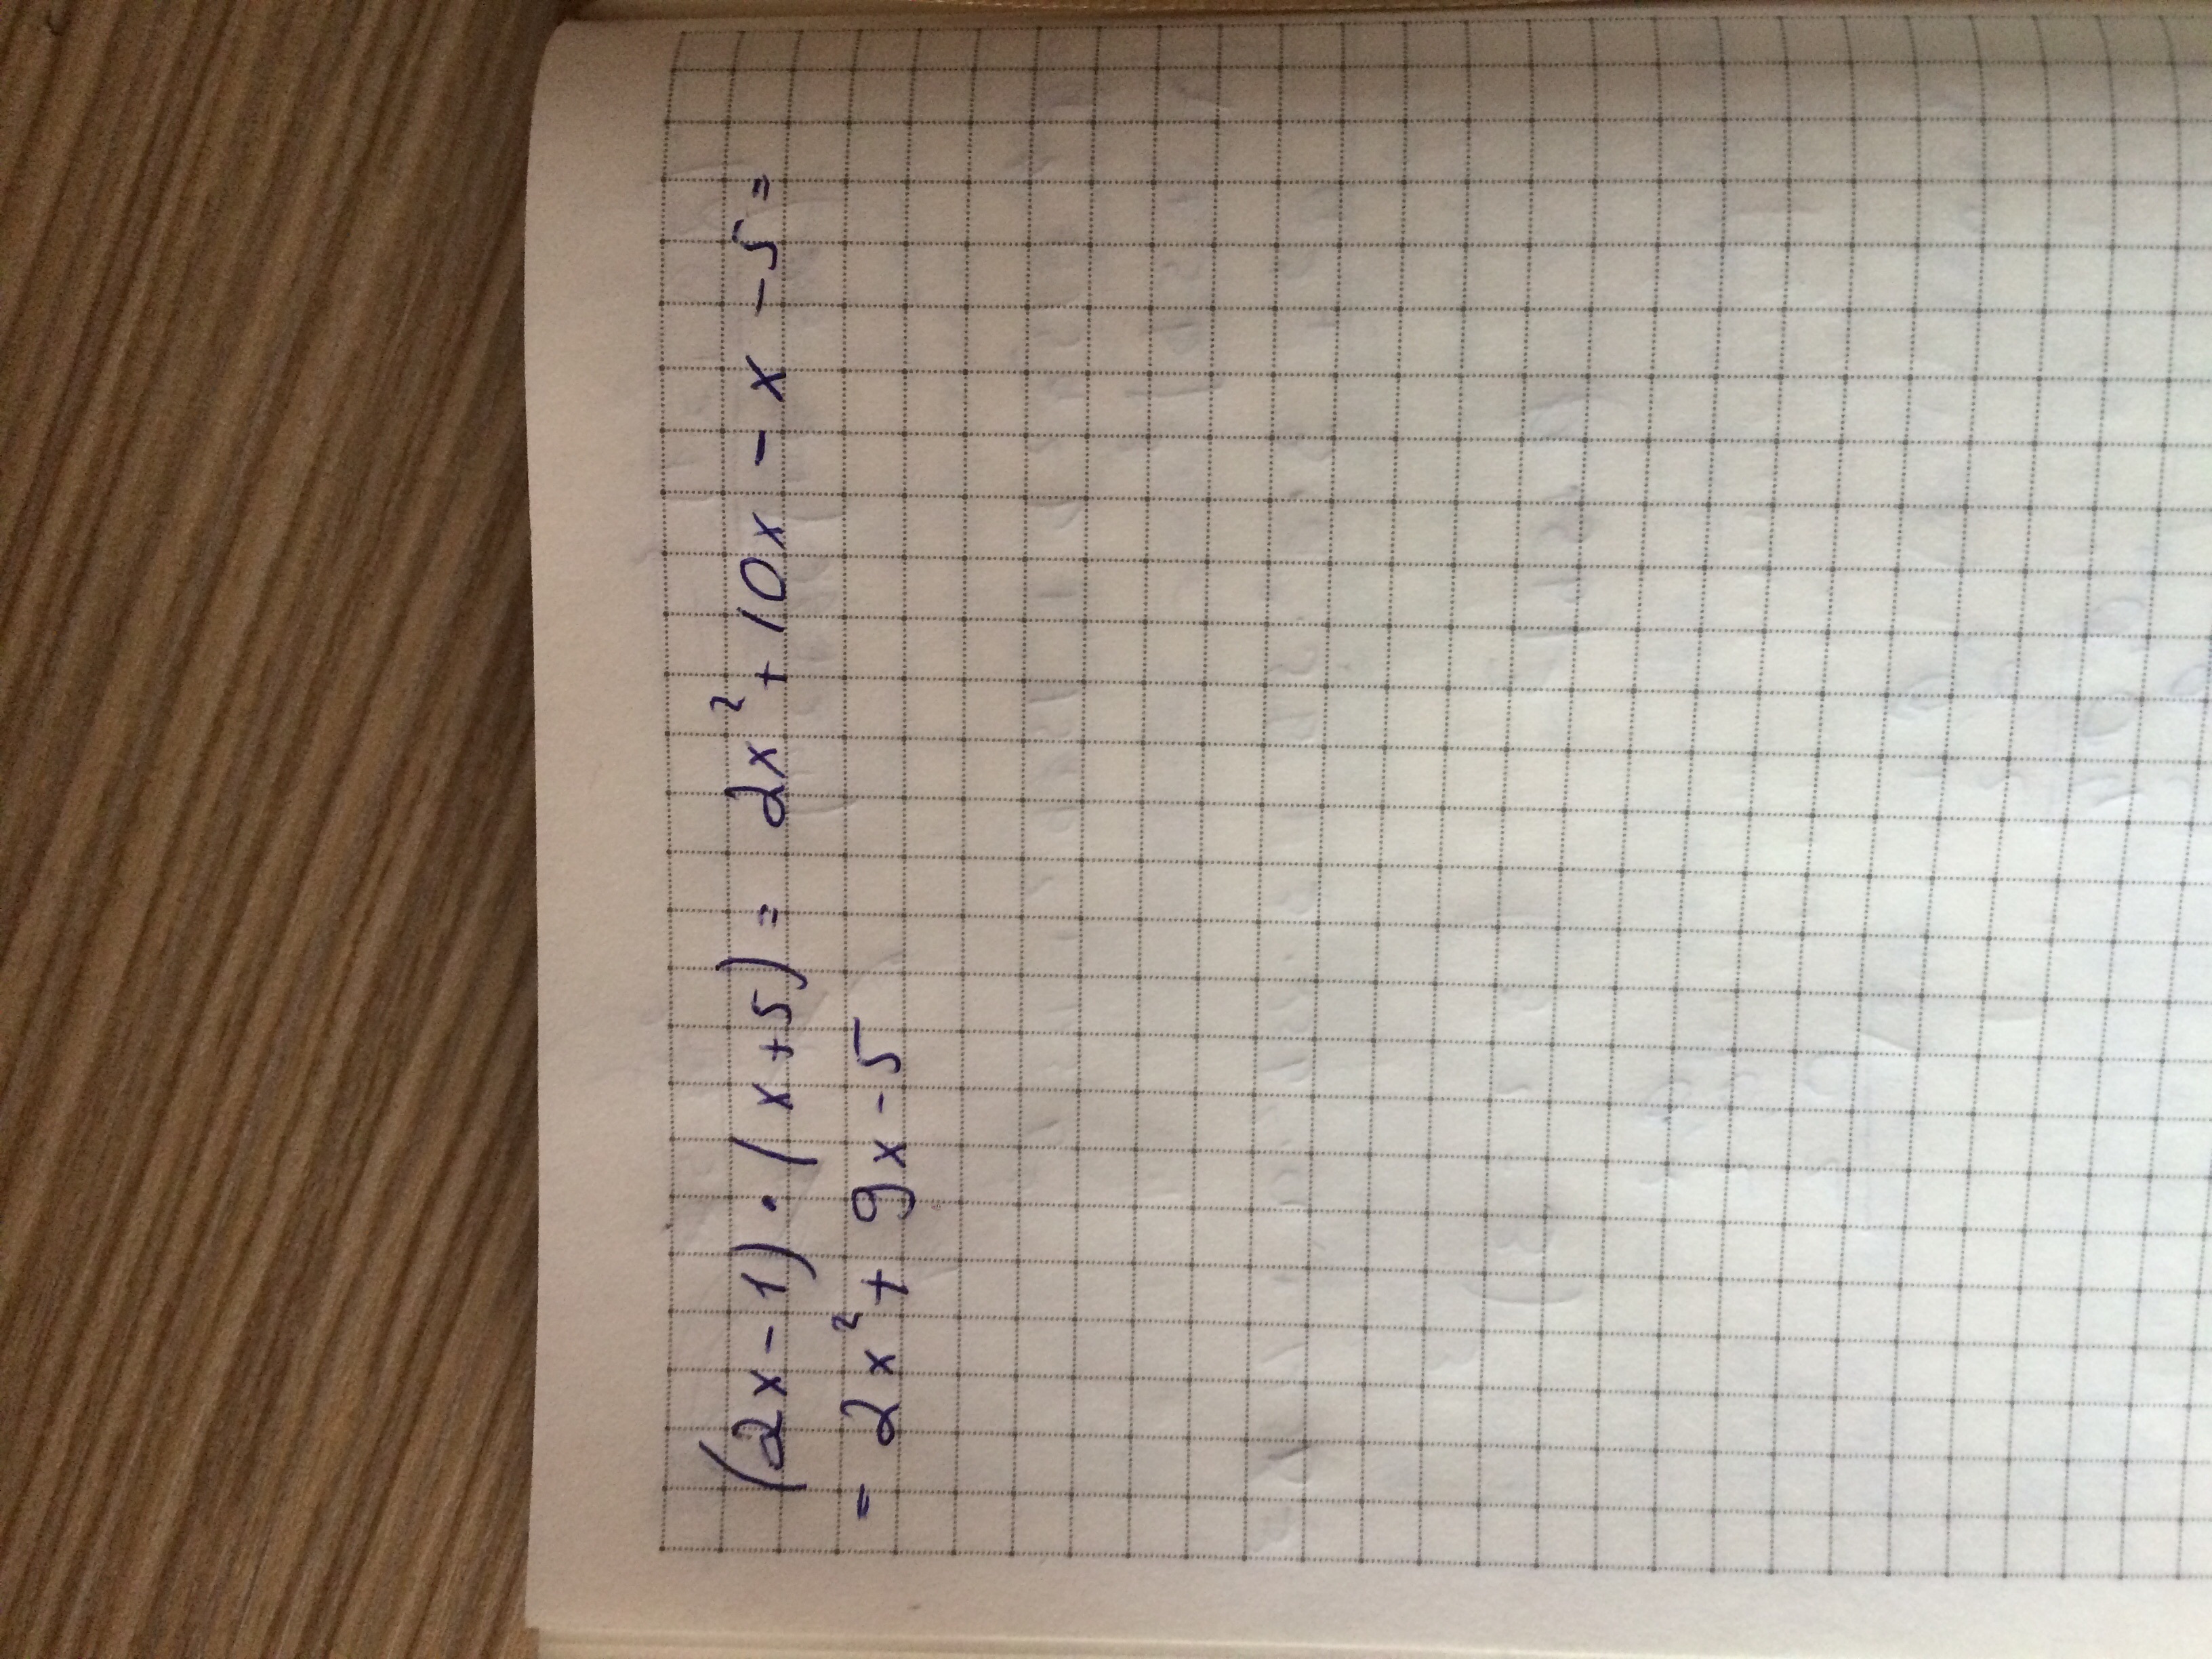 (2x-1)·(x+5) = 2x²+10x-x-5=
= 2x²+9x-5